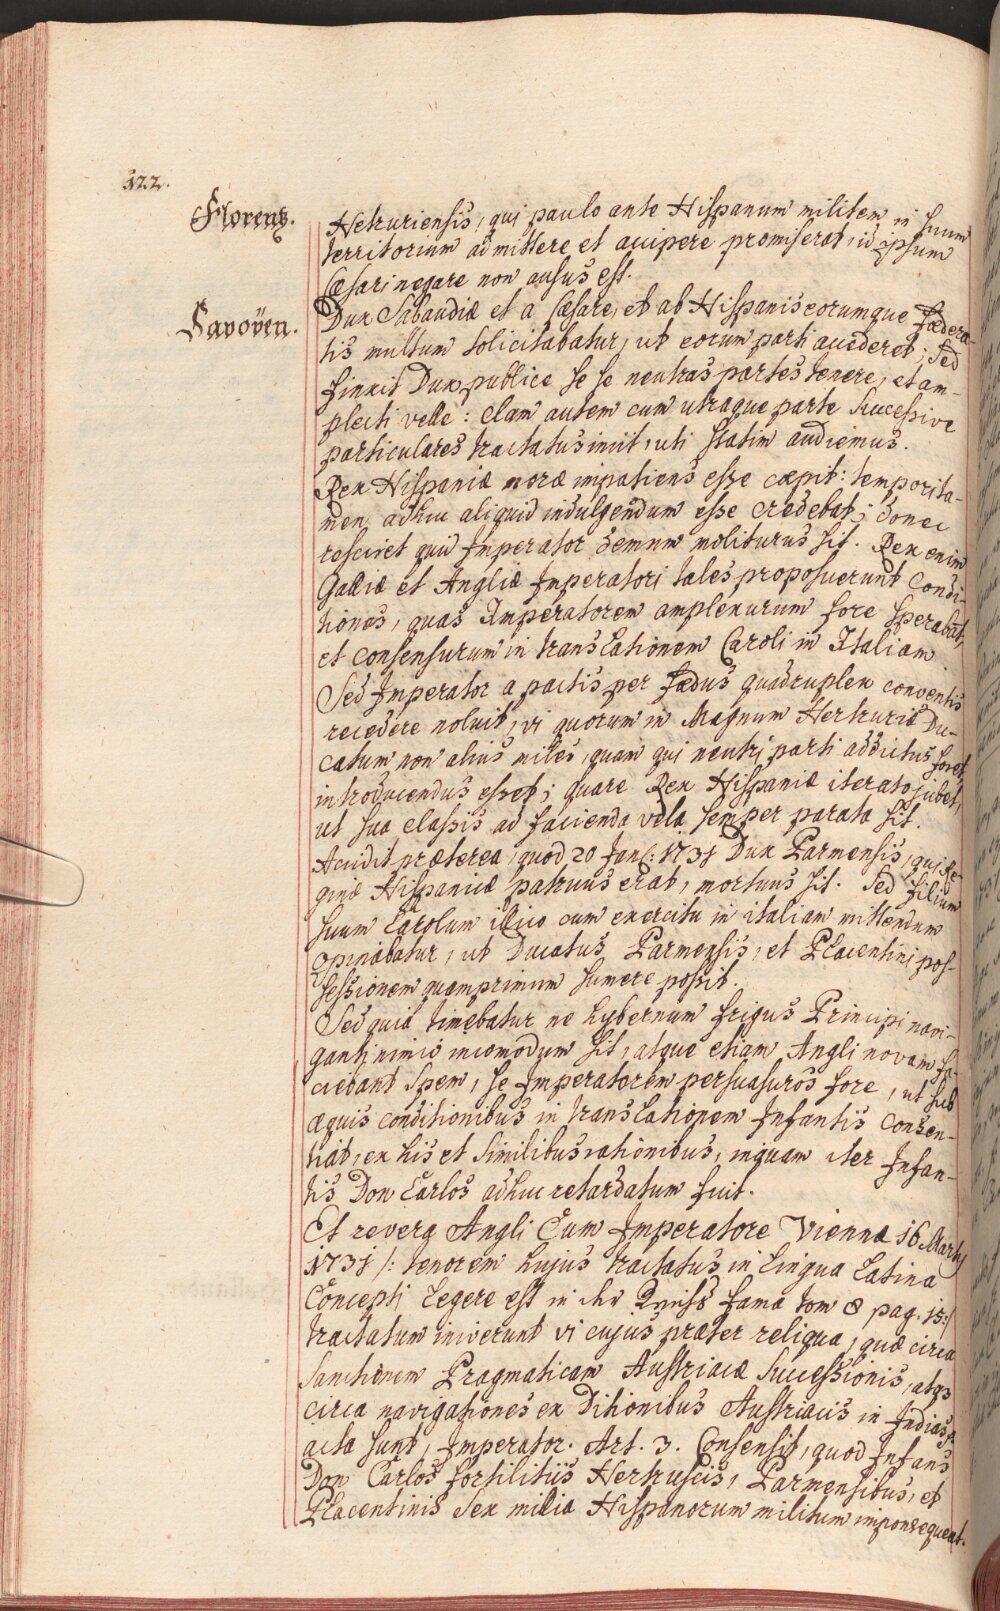 122.
Florentz.
Hetruriensis, qui paulo ante Hispanum militem in suum
territorium admittere et accipere promiserat, id ipsum
Cæsari negare non ausus est.
Savoÿen.
Dux Sabaudiæ et a Cæsare, et ab Hispanis eorumque fœdera-
tis multum solicitabatur, ut eorum parti accederet; sed
finxit Dux publice se se neutras partes tenere, et am-
plecti velle: clam autem cum utraque parte successive
particulares tractatus iniit, uti statim audiemus.
Rex Hispaniæ moræ impatiens esse cœpit: tempori ta-
men adhuc aliquid indulgendum esse credebat; donec
resciret quid Imperator demum moliturus sit. Rex enim
Galliæ et Angliæ Imperatori tales proposuerunt condi-
tiones, quas Imperatorem amplexurum fore sperabāt,
et consensurum in translationem Caroli in Italiam
Sed Imperator a pactis per fœdus quadruplex conventis
recedere noluit, vi quorum in Magnum Hertruriæ Du-
catum non alius miles, quam qui neutri parti addictus foret,
introducendus esset; quare Rex Hispaniæ iterato jubet,
ut sua classis ad facienda vela semper parata sit.
Accidit præterea, quod 20 Jan: 1731 Dux Parmensis, qui Re-
ginæ Hispaniæ patruus erat, mortuus sit. Sed filium
suum Carolum illico cum exercitu in italiam mittendum
opinabatur, ut Ducatus Parmensis, et Placentini pos-
sessionem quamprimum sumere possit.
Sed quia timebatur ne hybernum frigus Principi navi-
ganti nimio incomodum sit, atque etiam Angli novam fa-
ciebant spem, se Imperatorem persuasuros fore, ut sub
æquis conditionibus in translationem Infantis consen-
tiat, ex his et similibus rationibus, inquam iter Infan-
tis Don Carlos adhuc retardatum fuit.
Et revera Angli Cum Imperatore Viennæ 16 Marty
1731 /: tenorem hujus tractatus in Lingua Latina
Concepti Legere est in der fama tom 8 pag. 15:/
tractatum iniverunt vi cujus præter reliqua, quæ circa
Sanctionem Pragmaticam Austriacæ Successionis, atqz
circa navigationes ex Ditionibus Austriacis in Indias
acta sunt, Imperator. Art. 3. Consensit, quod Infans
Don Carlos fortilitiis Hertruscis, Parmensibus, et
Placentinis sex millia Hispanorum militum imponere queat.